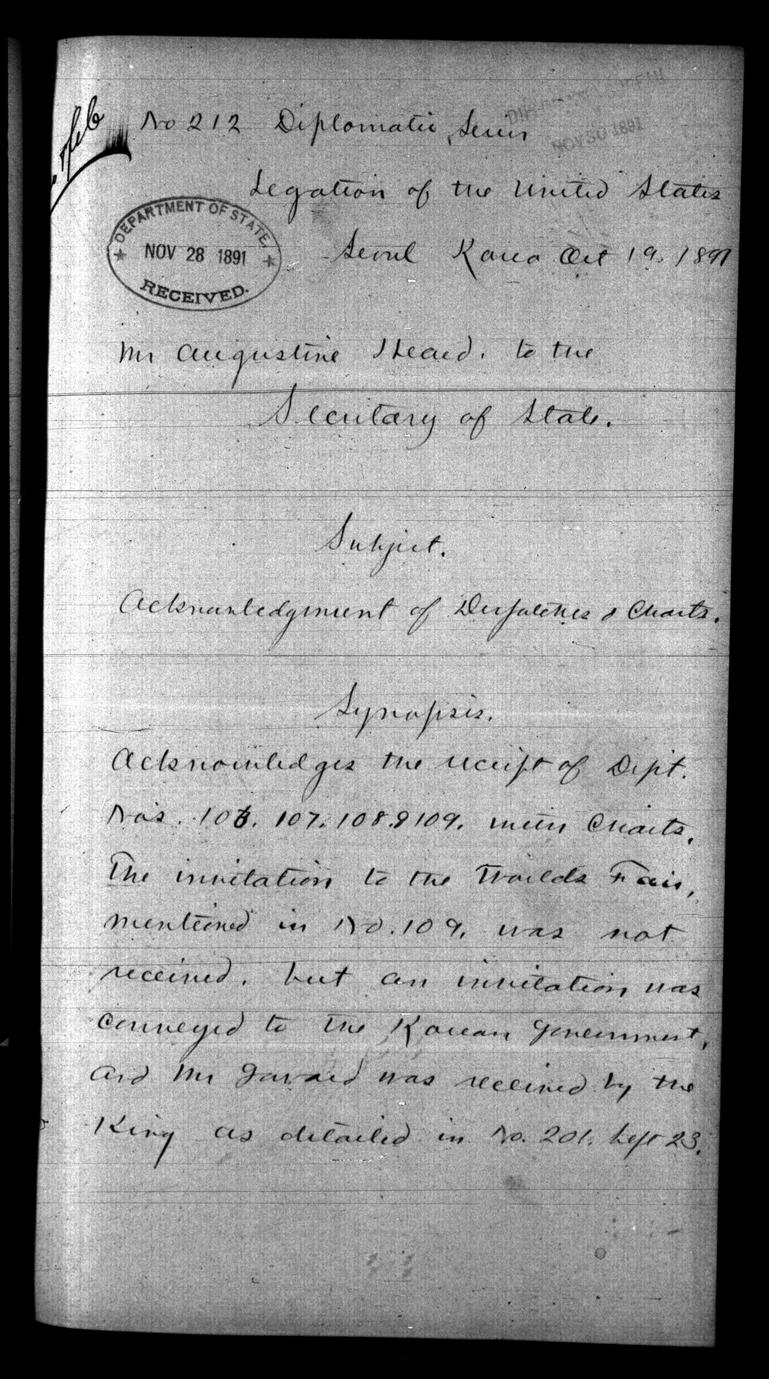 No 212 Diplomatic Series
Legation of the United States
DEPARTMENT OF STATE,
NOV 28 1891
RECEIVED.
NOV 30 1891
Seoul Korea Oct 19. 1891
Mr Augustine Heard. to the
Secretary of State.
Subject.
Acknowledgment of Despatches & Charts.
Synopsis.
Acknowledges the receipt of Dept.
No's. 106. 107. 108. & 109. with Charts.
The invitation to the Worlds Fair,
mentioned in No. 109. was not
received. but an invitation was
conveyed to the Korean Government,
and Mr was received by the
King as detailed in No. 201. Sept 23.